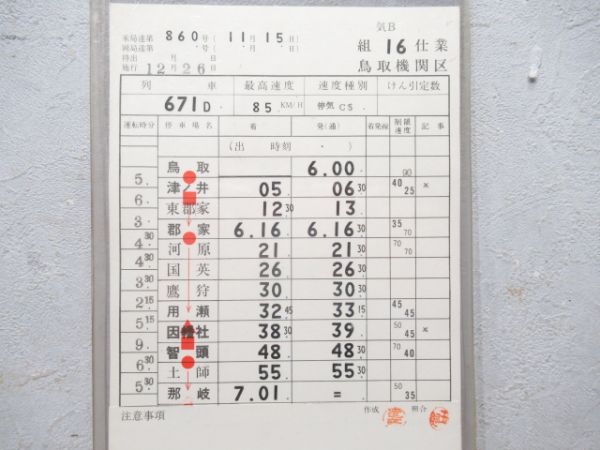 気B
米局達第 860号(11月15日)
岡局達第 号( 月 日)
組 16 仕業
持出 月 日
施行 12月26日
鳥取機関区
列車 最高速度 速度種別 けん引定数
671D 85 KM/H 停気 C5
運転時分 停車場名 着 発(通) 着発線 制限速度 記事
(出 時刻 ・ )
鳥取 6.00 90
5.
津ノ井 05 06 30 40 25 ×
6.
東郡家 12 30 13
3.
郡家 6.16 6.16 30 35 70
4 30
河原 21 21 30 70 70
4 30
国英 26 26 30
3 30
鷹狩 30 30 30
2 15
用瀬 32 45 33 15 45 45
5 15
因幡社 38 30 39 50 45 ×
9.
智頭 48 48 30 70 40
6 30
土師 55 55 30
5 30
那岐 7.01 = 50 35
注意事項 作成 照合